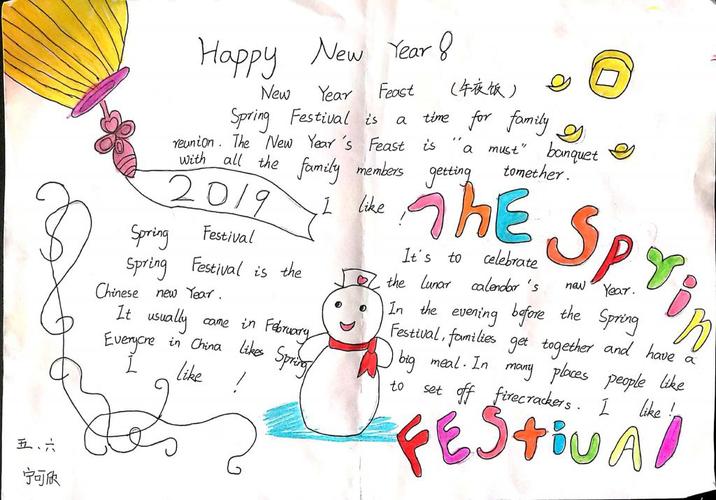 Happy New Year!
New Year Feast (午夜饭)
Spring Festival is a time for family
reunion. The New Year's Feast is "a must" banquet
with all the family members getting tomether.
I like!
2019
ThE Sprin
Spring Festival
Spring Festival is the
Chinese new Year.
It usually came in February
Everyone in China likes Spring
I like!
It's to celebrate
the lunar calendar's new Year.
In the evening before the Spring
Festival, families get together and have a
big meal. In many places people like
to set off firecrackers. I like!
FEStiUAl
五、六
宁可欣